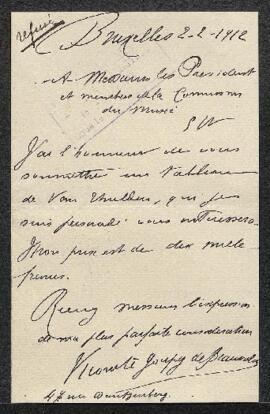 refusé
Bruxelles 2-2-1912
A Messieurs les President
et membres de la Commission
du Musée
E/V
J'ai l'honneur de vous
soumettre un tableau
de Van Thulden, que je
suis persuadé vous intéressera
Mon prix est de dix mille
francs.
Recevez messieurs l'expression
de ma plus parfaite considération
Vicomte de
42 rue